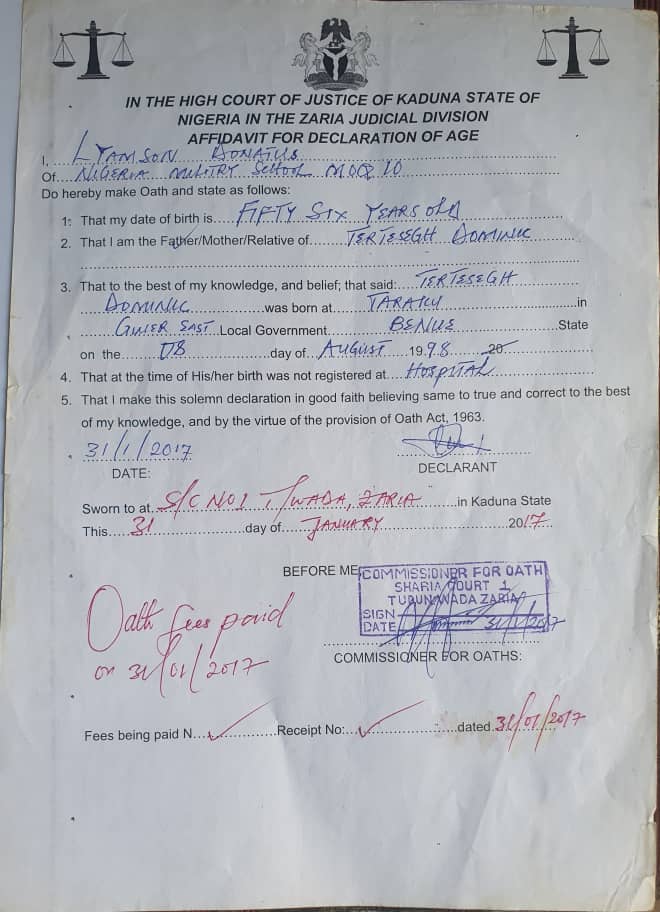 IN THE HIGH COURT OF JUSTICE OF KADUNA STATE OF
NIGERIA IN THE ZARIA JUDICIAL DIVISION
AFFIDAVIT FOR DECLARATION OF AGE
I, LYAMSON DONATUS
Of NIGERIA MILITRY SCHOOL MOQ 10
Do hereby make Oath and state as follows:
1. That my date of birth is FIFTY SIX YEARS Old
2. That I am the Father/Mother/Relative of TERTESEGH DOMINIC
3. That to the best of my knowledge, and belief; that said: TERTESEGH
DOMINIC was born at TARAKU in
GWER EAST Local Government BENUE State
on the 08 day of AUGUST 1998 20
4. That at the time of His/her birth was not registered at HOSPITAL
5. That I make this solemn declaration in good faith believing same to true and correct to the best
of my knowledge, and by the virtue of the provision of Oath Act, 1963.
31/1/2017
DATE:
DECLARANT
Sworn to at S/C NO1 T/WADA, ZARIA in Kaduna State
This 31 day of JANUARY 2017
BEFORE ME
COMMISSIONER FOR OATH
SHARIA COURT 1
TUDUN WADA ZARIA
SIGN
DATE 31/1/2017
COMMISSIONER FOR OATHS:
Oath fees paid
on 31/01/2017
Fees being paid N Receipt No: dated 31/01/2017